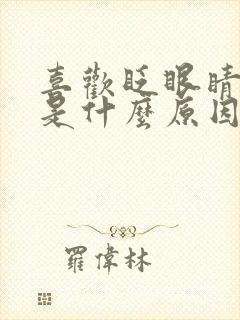 喜歡眨眼睛
是什麼原因
羅偉林